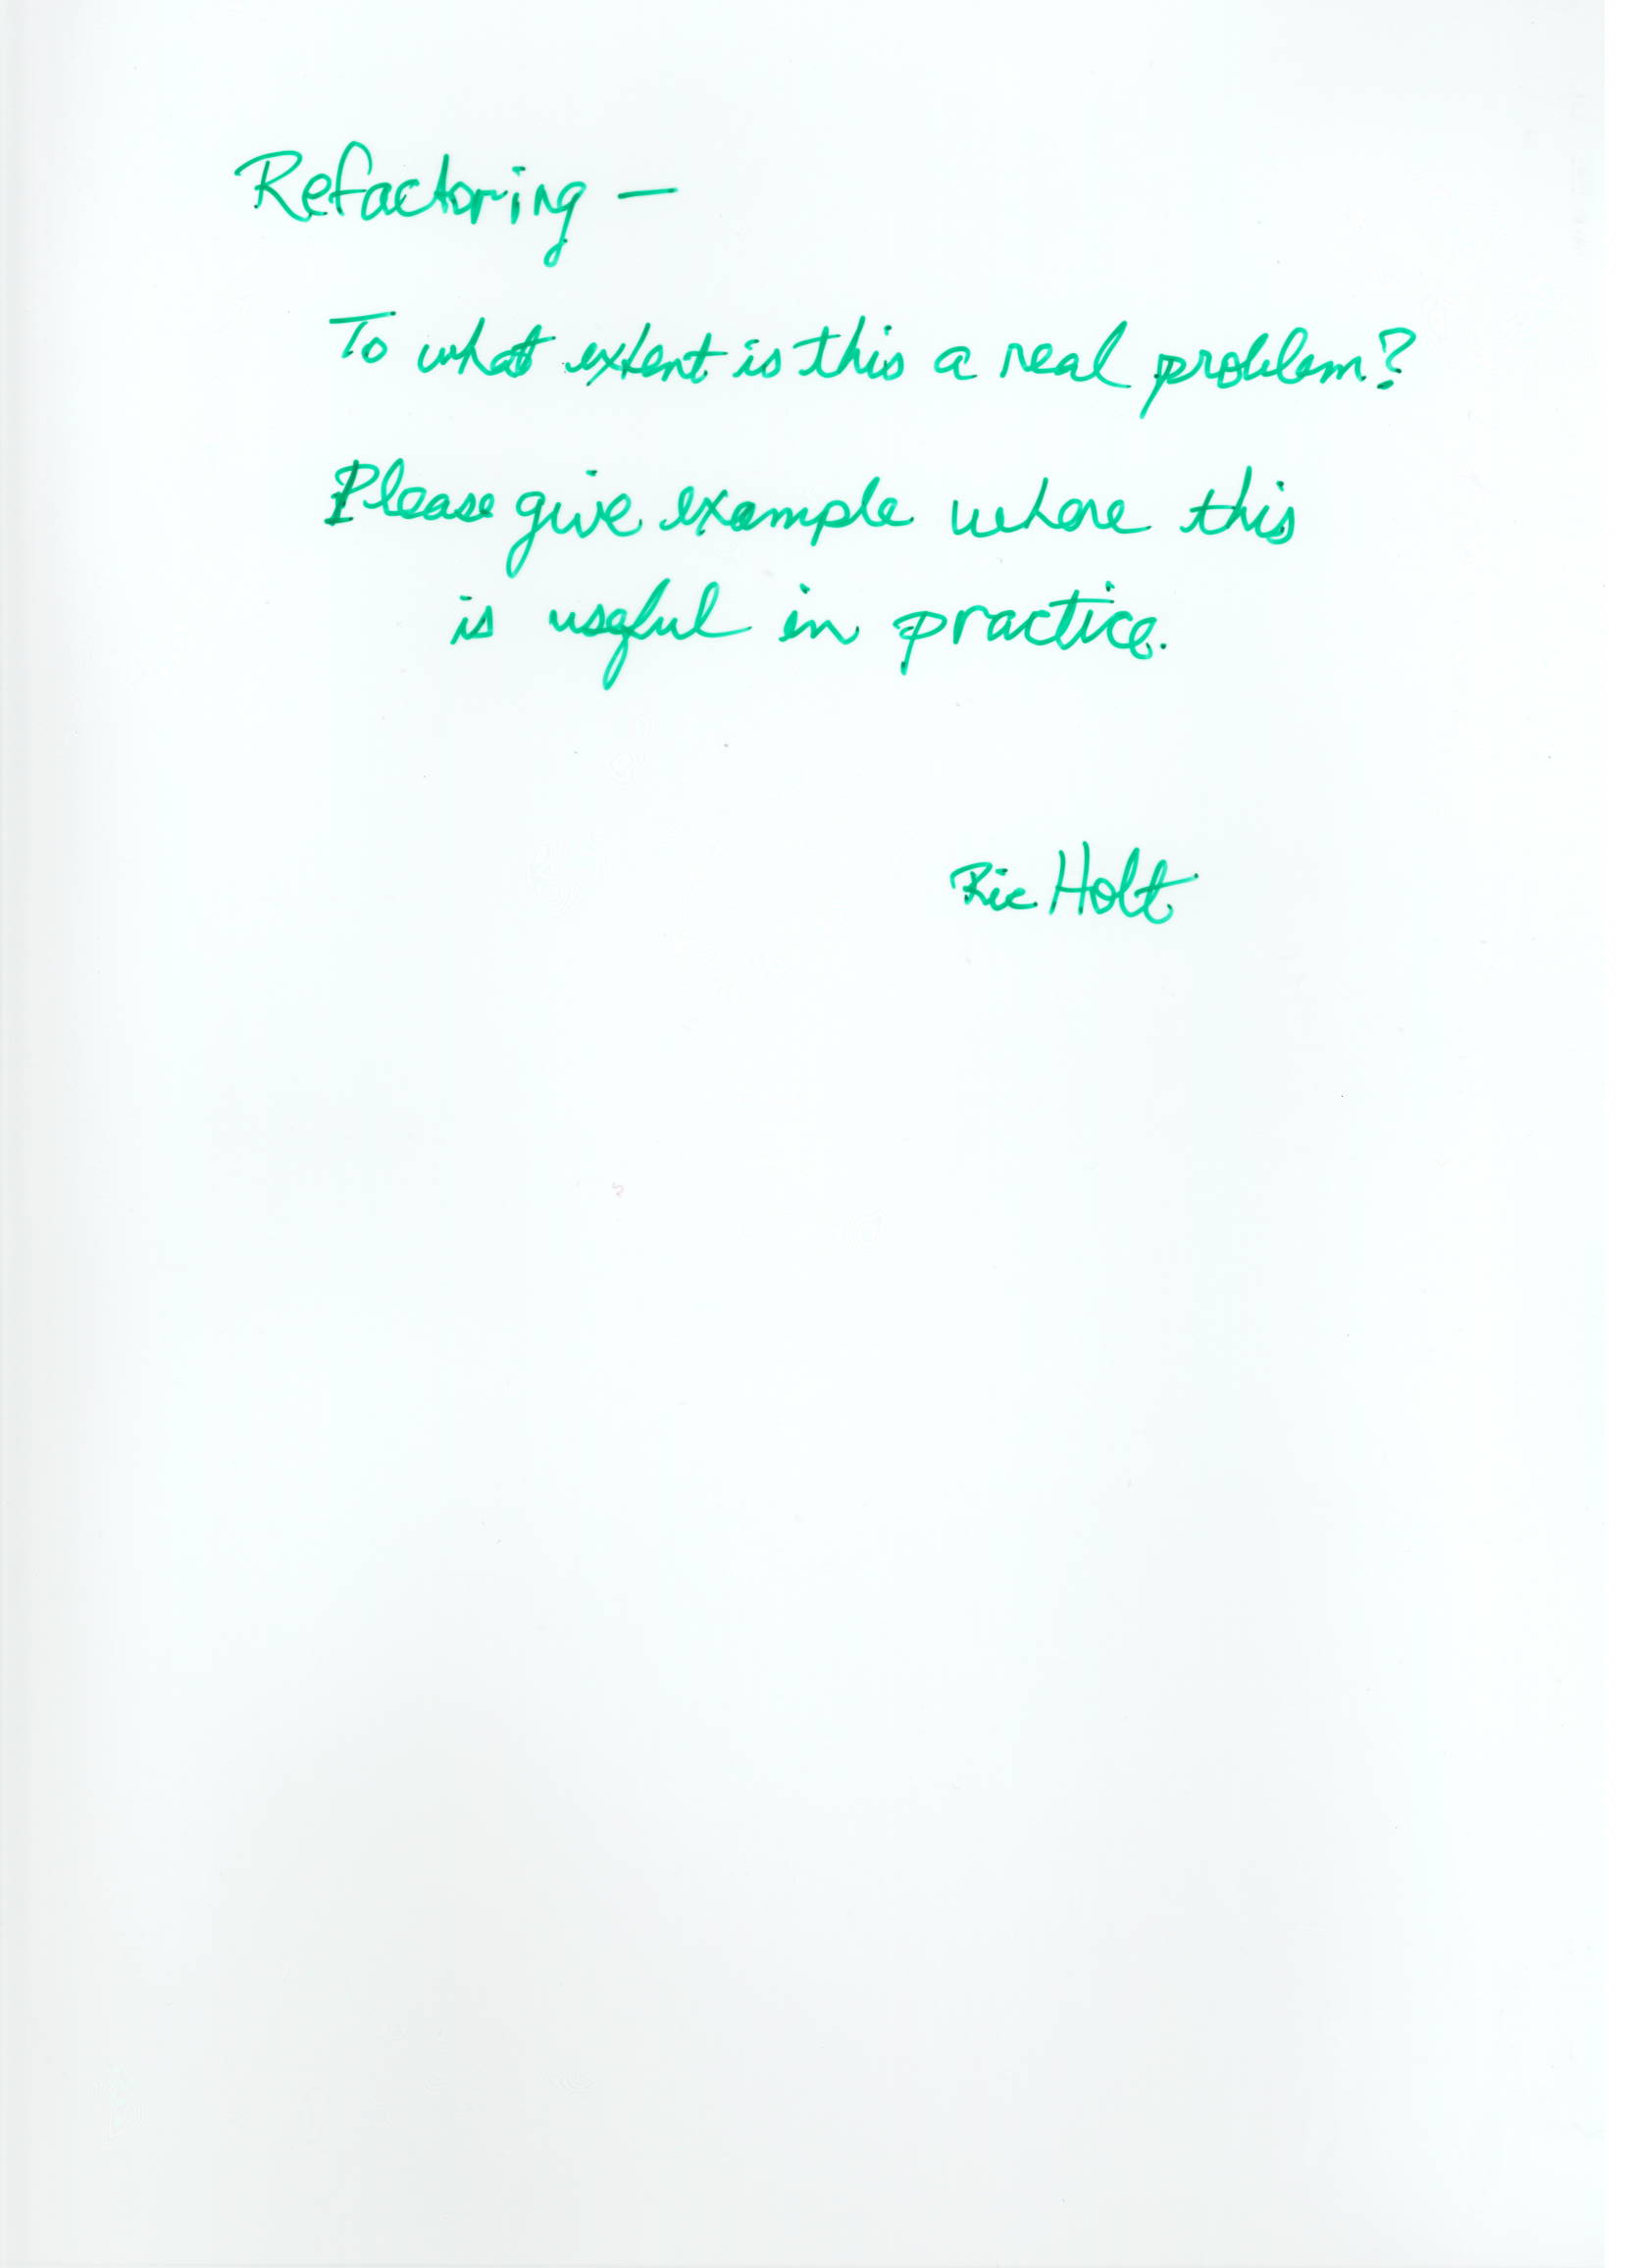 Refactoring —
To what extent is this a real problem?
Please give example where this
is useful in practice.
Ric Holt